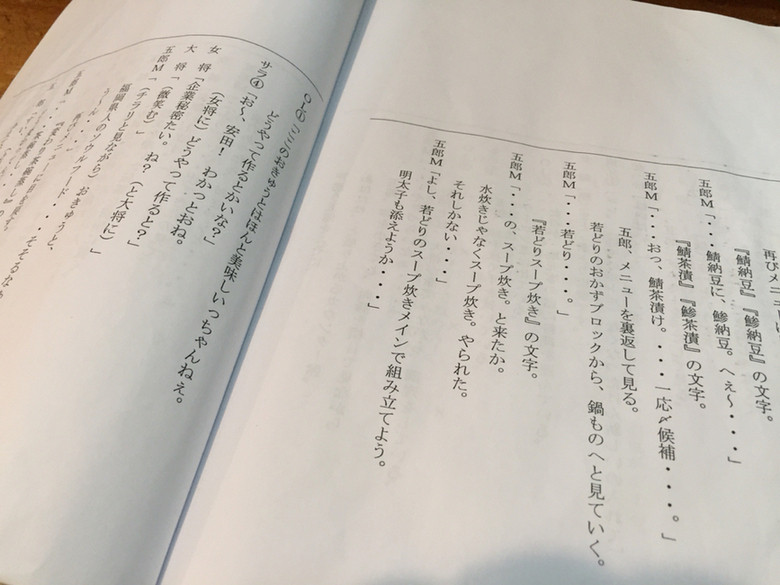 再びメニュー
『鯖納豆』『鯵納豆』の文字。
五郎M「・・・鯖納豆に、鯵納豆。へぇ～・・・」
『鯖茶漬』『鯵茶漬』の文字。
五郎M「・・・おっ、鯖茶漬け。・・・一応〆候補・・・。」
五郎、メニューを裏返して見る。
若どりのおかずブロックから、鍋ものへと見ていく。
五郎M「・・・若どり・・・。」
『若どりスープ炊き』の文字。
五郎M「・・・の、スープ炊き。と来たか。
水炊きじゃなくスープ炊き。やられた。
それしかない・・・」
五郎M「よし、若どりのスープ炊きメインで組み立てよう。
明太子も添えようか・・・」
OL①「ここのおきゅうとはほんと美味しいっちゃんねぇ。
どうやって作るとかいな?」
サラ④「お～、安田! わかっとおね。
(女将に)どうやって作ると?」
女 将「企業秘密たい。ね?(と大将に)」
大 将「(微笑む)」
五郎M「(チラリと見ながら)
福岡県人のソウルフード・・・おきゅうと、